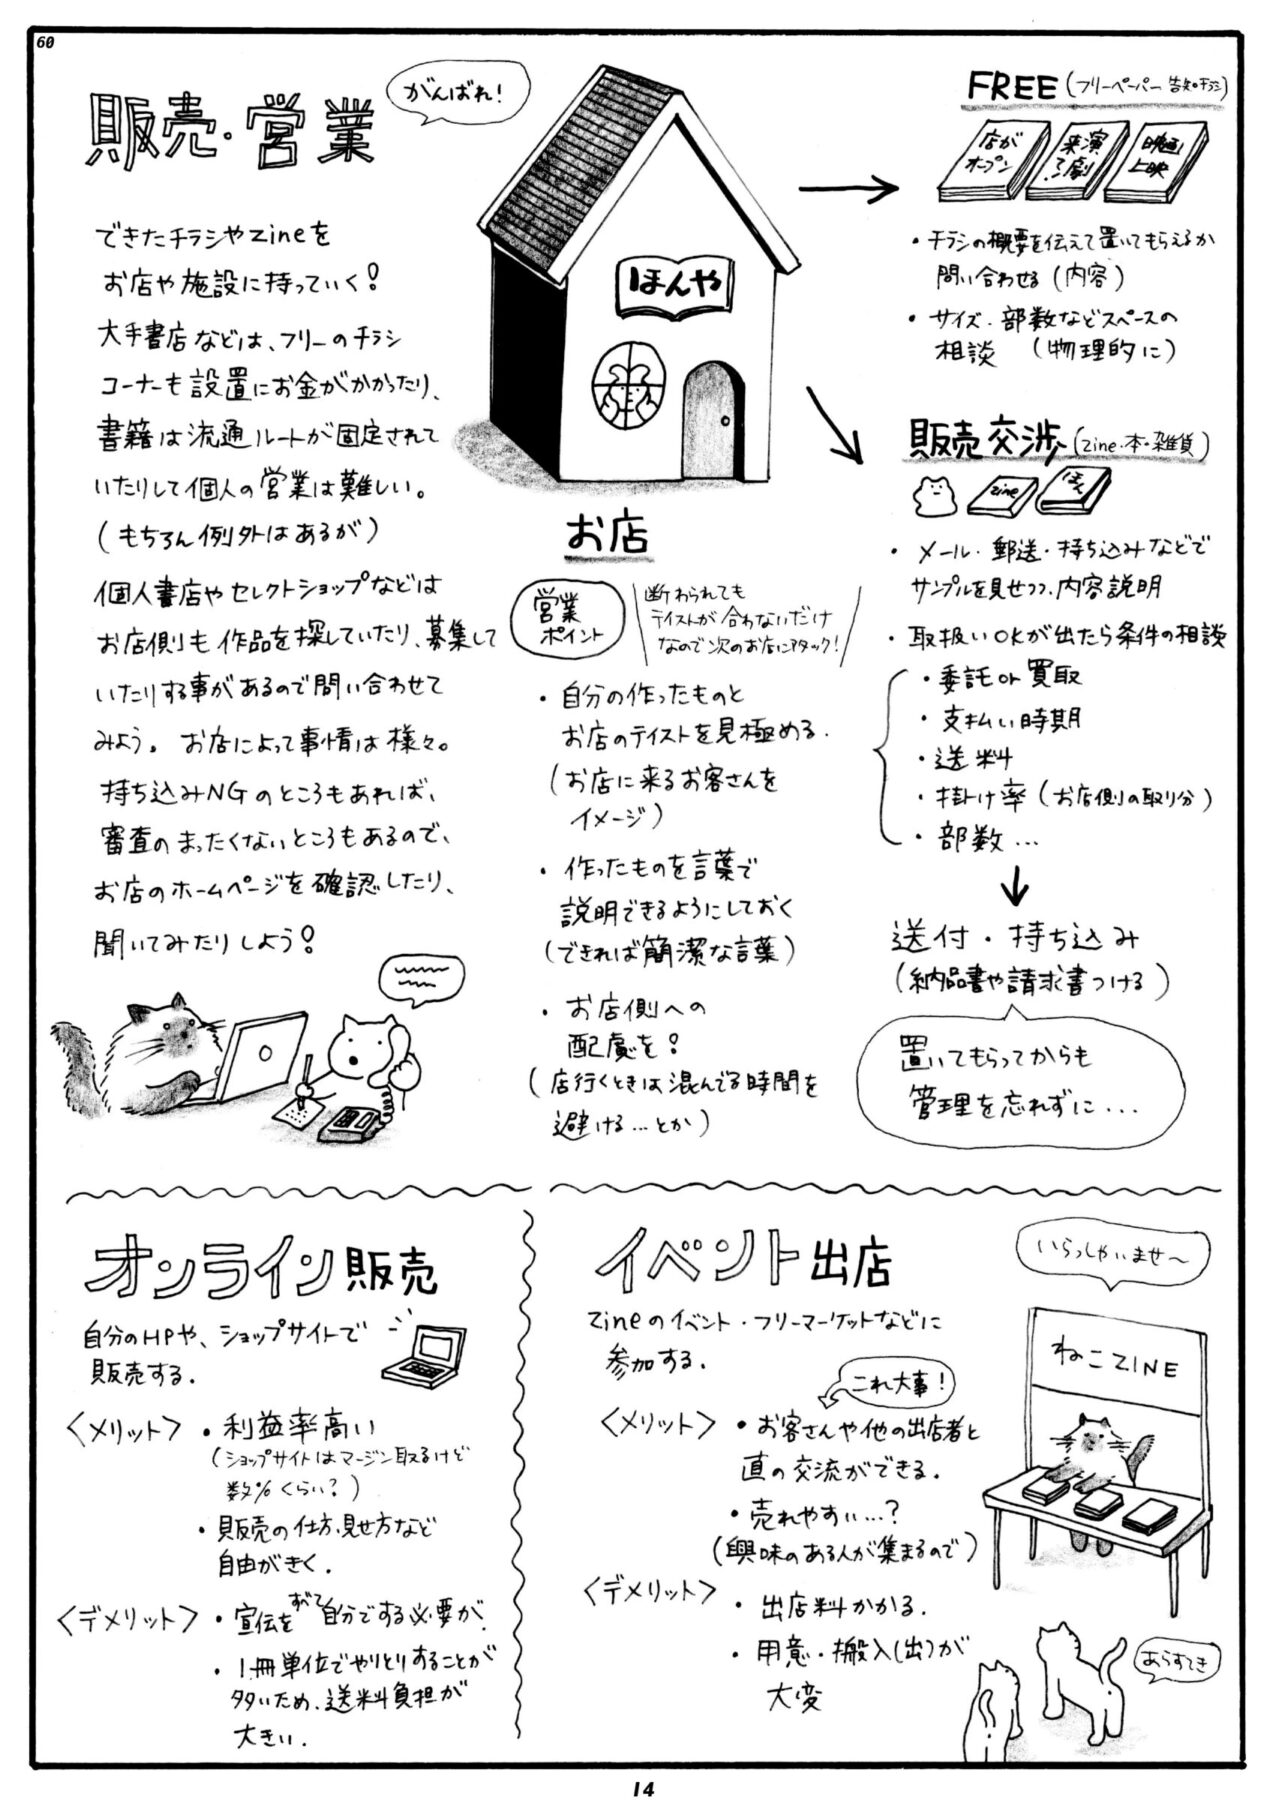 60
販売・営業
がんばれ!
できたチラシやzineを
お店や施設に持っていく!
大手書店などは、フリーのチラシ
コーナーも設置にお金がかかったり、
書籍は流通ルートが固定されて
いたりして個人の営業は難しい。
(もちろん例外はあるが)
個人書店やセレクトショップなどは
お店側も作品を探していたり、募集して
いたりする事があるので問い合わせて
みよう。お店によって事情は様々。
持ち込みNGのところもあれば、
審査のまったくないところもあるので、
お店のホームページを確認したり、
聞いてみたりしよう!
ほんや
お店
営業
ポイント
断わられても
テイストが合わないだけ
なので次のお店にアタック!
・自分の作ったものと
お店のテイストを見極める.
(お店に来るお客さんを
イメージ)
・作ったものを言葉で
説明できるようにしておく
(できれば簡潔な言葉)
・お店側への
配慮を!
(店行くときは混んでる時間を
避ける…とか)
FREE(フリーペーパー 告知・チラシ)
店が
オープン
演劇
来てネ!
映画
上映
・チラシの概要を伝えて置いてもらえるか
問い合わせる(内容)
・サイズ・部数などスペースの
相談 (物理的に)
販売交渉(zine・本・雑貨)
zine
ほん
・メール・郵送・持ち込みなどで
サンプルを見せつつ、内容説明
・取扱いOKが出たら条件の相談
・委託or買取
・支払い時期
・送料
・掛け率(お店側の取り分)
・部数…
送付・持ち込み
(納品書や請求書つける)
置いてもらってからも
管理を忘れずに...
オンライン販売
自分のHPや、ショップサイトで
販売する.
〈メリット〉・利益率高い
(ショップサイトはマージン取るけど
数%くらい?)
・販売の仕方・見せ方など
自由がきく.
〈デメリット〉・宣伝をすべて自分でする必要が.
・1冊単位でやりとりすることが
多いため、送料負担が
大きい.
イベント出店
zineのイベント・フリーマーケットなどに
参加する.
これ大事!
〈メリット〉・お客さんや他の出店者と
直の交流ができる.
・売れやすい…?
(興味のある人が集まるので)
〈デメリット〉・出店料かかる.
・用意・搬入(出)が
大変
いらっしゃいませ〜
ねこZINE
あらすてき
14